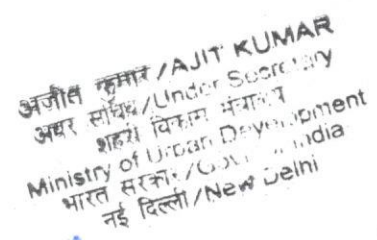 अजीत कुमार / AJIT KUMAR
अवर सचिव / Under Secretary
शहरी विकास मंत्रालय
Ministry of Urban Development
भारत सरकार / Govt. of India
नई दिल्ली / New Delhi